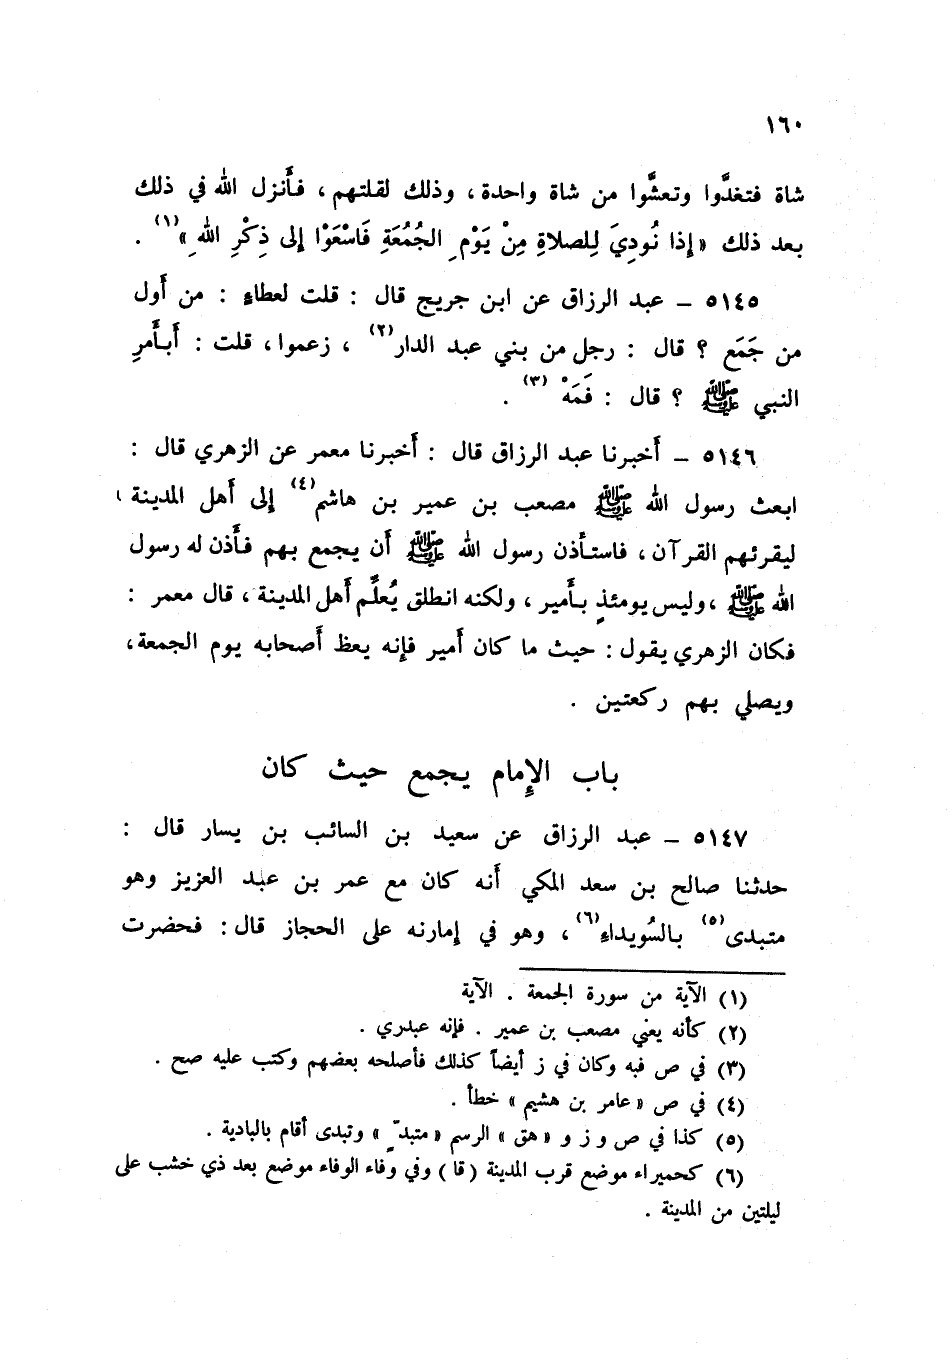 ١٦٠
شاة فتغدَّوا وتعشَّوا من شاة واحدة ، وذلك لقلتهم ، فأَنزل الله في ذلك
بعد ذلك « إِذا نُودِيَ لِلصلاةِ مِنْ يَوْمِ الجُمُعَةِ فَاسْعَوْا إِلى ذِكْرِ اللهِ »(١) .
٥١٤٥ – عبد الرزاق عن ابن جريج قال : قلت لعطاءٍ : من أَول
من جَمَع ؟ قال : رجل من بني عبد الدار(٢) ، زعموا ، قلت : أَبأَمرِ
النبي ﷺ ؟ قال : فَمَهْ(٣) .
٥١٤٦ – أَخبرنا عبد الرزاق قال : أَخبرنا معمر عن الزهري قال :
ابعث رسول الله ﷺ مصعب بن عمير بن هاشم(٤) إِلى أَهل المدينة ،
ليقرئهم القرآن ، فاستأذن رسول الله ﷺ أَن يجمع بهم فأَذن له رسول
الله ﷺ ، وليس يومئذٍ بأَمير ، ولكنه انطلق يُعلِّم أَهل المدينة ، قال معمر :
فكان الزهري يقول : حيث ما كان أَمير فإِنه يعظ أَصحابه يوم الجمعة ،
ويصلي بهم ركعتين .
باب الإِمام يجمع حيث كان
٥١٤٧ – عبد الرزاق عن سعيد بن السائب بن يسار قال :
حدثنا صالح بن سعد المكي أَنه كان مع عمر بن عبد العزيز وهو
متبدى(٥) بالسُويداءِ(٦) ، وهو في إِمارته على الحجاز قال : فحضرت
(١) الآية من سورة الجمعة . الآية
(٢) كأنه يعني مصعب بن عمير . فإنه عبدري .
(٣) في ص فبه وكان في ز أيضاً كذلك فأصلحه بعضهم وكتب عليه صح .
(٤) في ص « عامر بن هشيم » خطأ .
(٥) كذا في ص و ز و « هق » الرسم « متبدٍّ » وتبدى أقام بالبادية .
(٦) كحميراء موضع قرب المدينة ( قا ) وفي وفاء الوفاء موضع بعد ذي خشب على
ليلتين من المدينة .